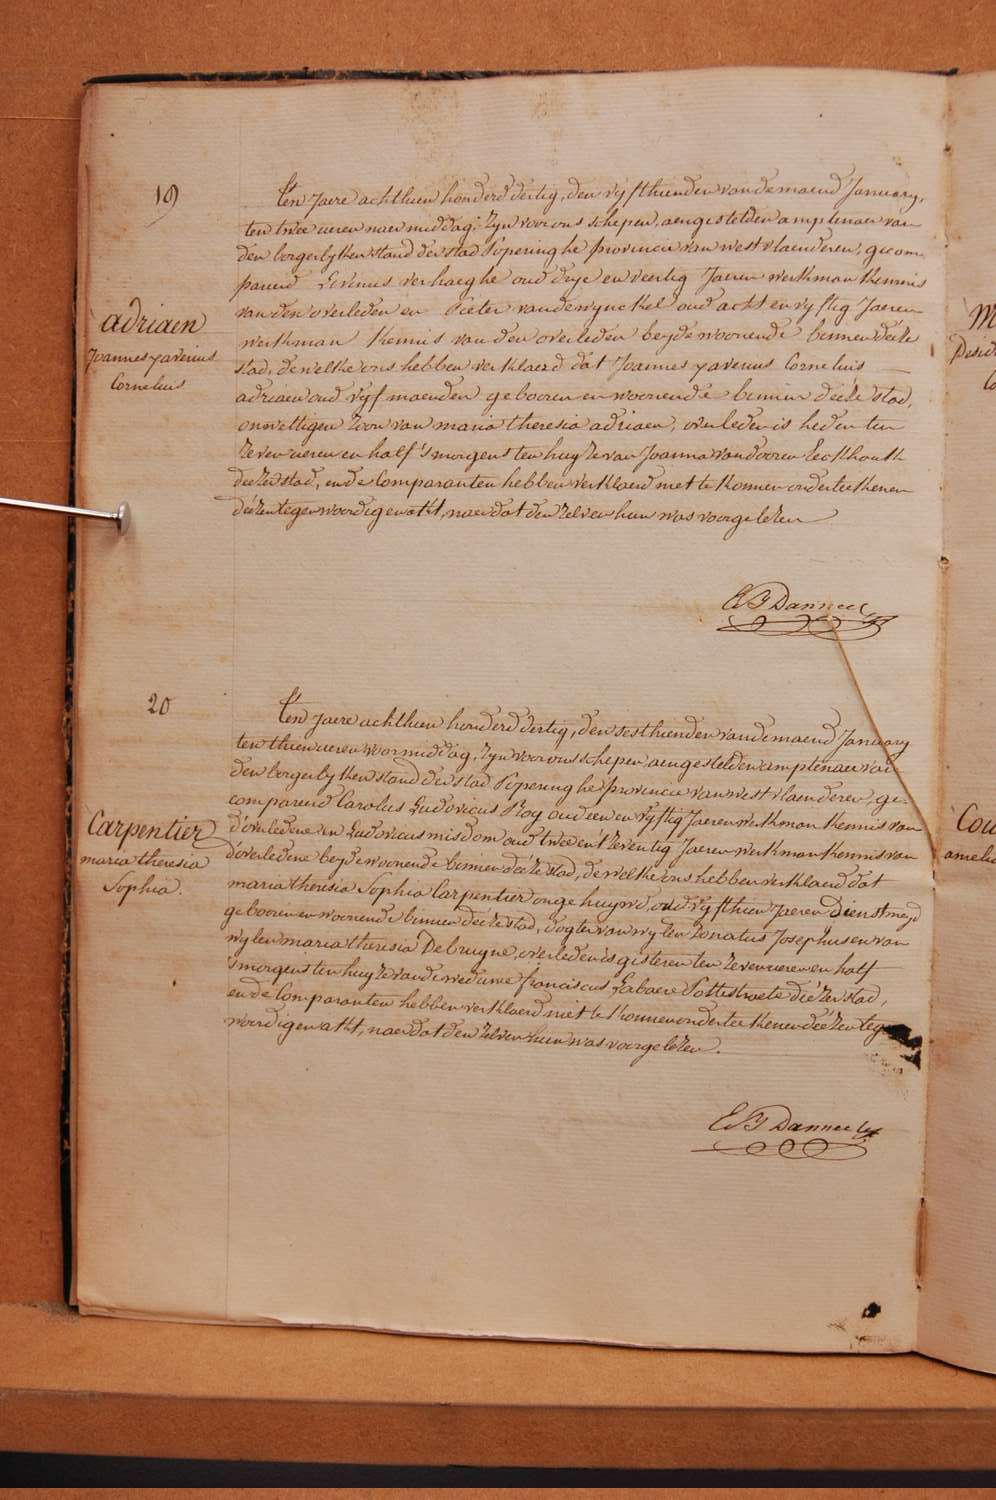 19
Ten Jaere achthien honderd dertig, den vyfthienden van de maend January,
ten twee ueren naer middag, zyn voor ons schepen, aengestelden amptenaer van
den borgerlyken stand der stad Poperinghe provincie van westvlaenderen, gecom-
pareerd Livinus verhaeghe oud drye en veertig Jaeren werkman kennis
van den overleden en Pieter vandewynckel oud acht en vyftig Jaeren
werkman kennis van den overleden beyde woonende binnen deéze
stad, de welke ons hebben verklaerd dat Joannes xaverius Cornelius
adriaen oud vyf maenden gebooren en woonende binnen deéze stad,
onwettigen zoon van maria theresia adriaen, overleden is heden ten
zeven ueren en half 's morgens ten huyze van Joanna van dooren Eeckhoutk
deézer stad, en de Comparanten hebben verklaerd niet te konnen onderteekenen
deézen tegenwoordigen akt, naer dat den zelven hun was voorgelezen
adriaen
Joannes xaverius
Cornelius
E B Danneel
20
Ten Jaere achthien honderd dertig, den sesthienden van de maend January
ten thien ueren voormiddag, zyn voor ons schepen aengestelden amptenaer van
den borgerlyken stand der stad Poperinghe provincie van westvlaenderen, ge-
compareerd Carolus Ludovicus Roy oud een en vyftig Jaeren werkman kennis van
d'overledene en Ludovicus misdom oud twee en t'zeventig Jaeren werkman kennis van
d'overledene beyde woonende binnen deéze stad, de welke ons hebben verklaerd dat
maria theresia Sophia Carpentier ongehuywd, oud vyfthien Jaeren Dienstmeyd
gebooren en woonende binnen deéze stad, dogter van wylen Donatus Josephus en van
wylen maria theresia Debruyne, overleden is gisteren ten zeven ueren en half
's morgens ten huyze van de weduwe franciscus Labaere Pottestraete deézer stad,
en de Comparanten hebben verklaerd niet te konnen onderteekenen deézen tegen-
woordigen akt, naer dat den zelven hun was voorgelezen.
Carpentier
maria theresia
Sophia.
E B Danneel
Desid
Cou
amelie